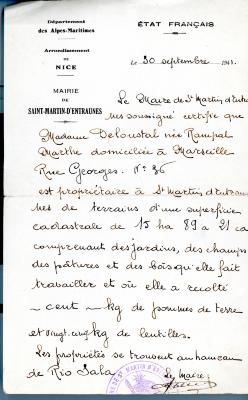 Département
des Alpes-Maritimes
Arrondissement
DE
NICE
MAIRIE
DE
SAINT-MARTIN-D'ENTRAUNES
ÉTAT FRANÇAIS
Le 30 septembre 194
Le Maire de St Martin d'Entrau
nes soussigné certifie que
Madame Deloustal née Rampal
Marthe domiciliée à Marseille
Rue Georges. N° 36
est propriétaire à St Martin d'Entrau
nes de terrains d'une superficie
cadastrale de 15 ha 89 a 21 ca
comprenant des jardins, des champs
des pâtures et des bois qu'elle fait
travailler et où elle a récolté
- cent - kg de pommes de terre
et vingt cinq kg de lentilles.
Les propriétés se trouvent au hameau
de Rio Sala.
Le Maire